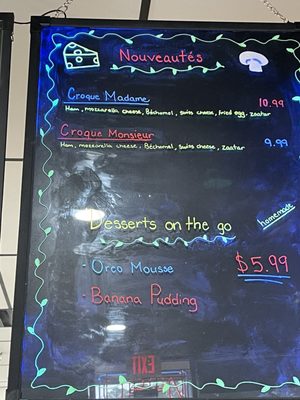 Nouveautés
Croque Madame 10.99
Ham, mozzarella cheese, Béchamel, swiss cheese, fried egg, zaatar
Croque Monsieur 9.99
Ham, mozzarella cheese, Béchamel, swiss cheese, zaatar
homemade
Desserts on the go
- Oreo Mousse $5.99
- Banana Pudding
EXIT